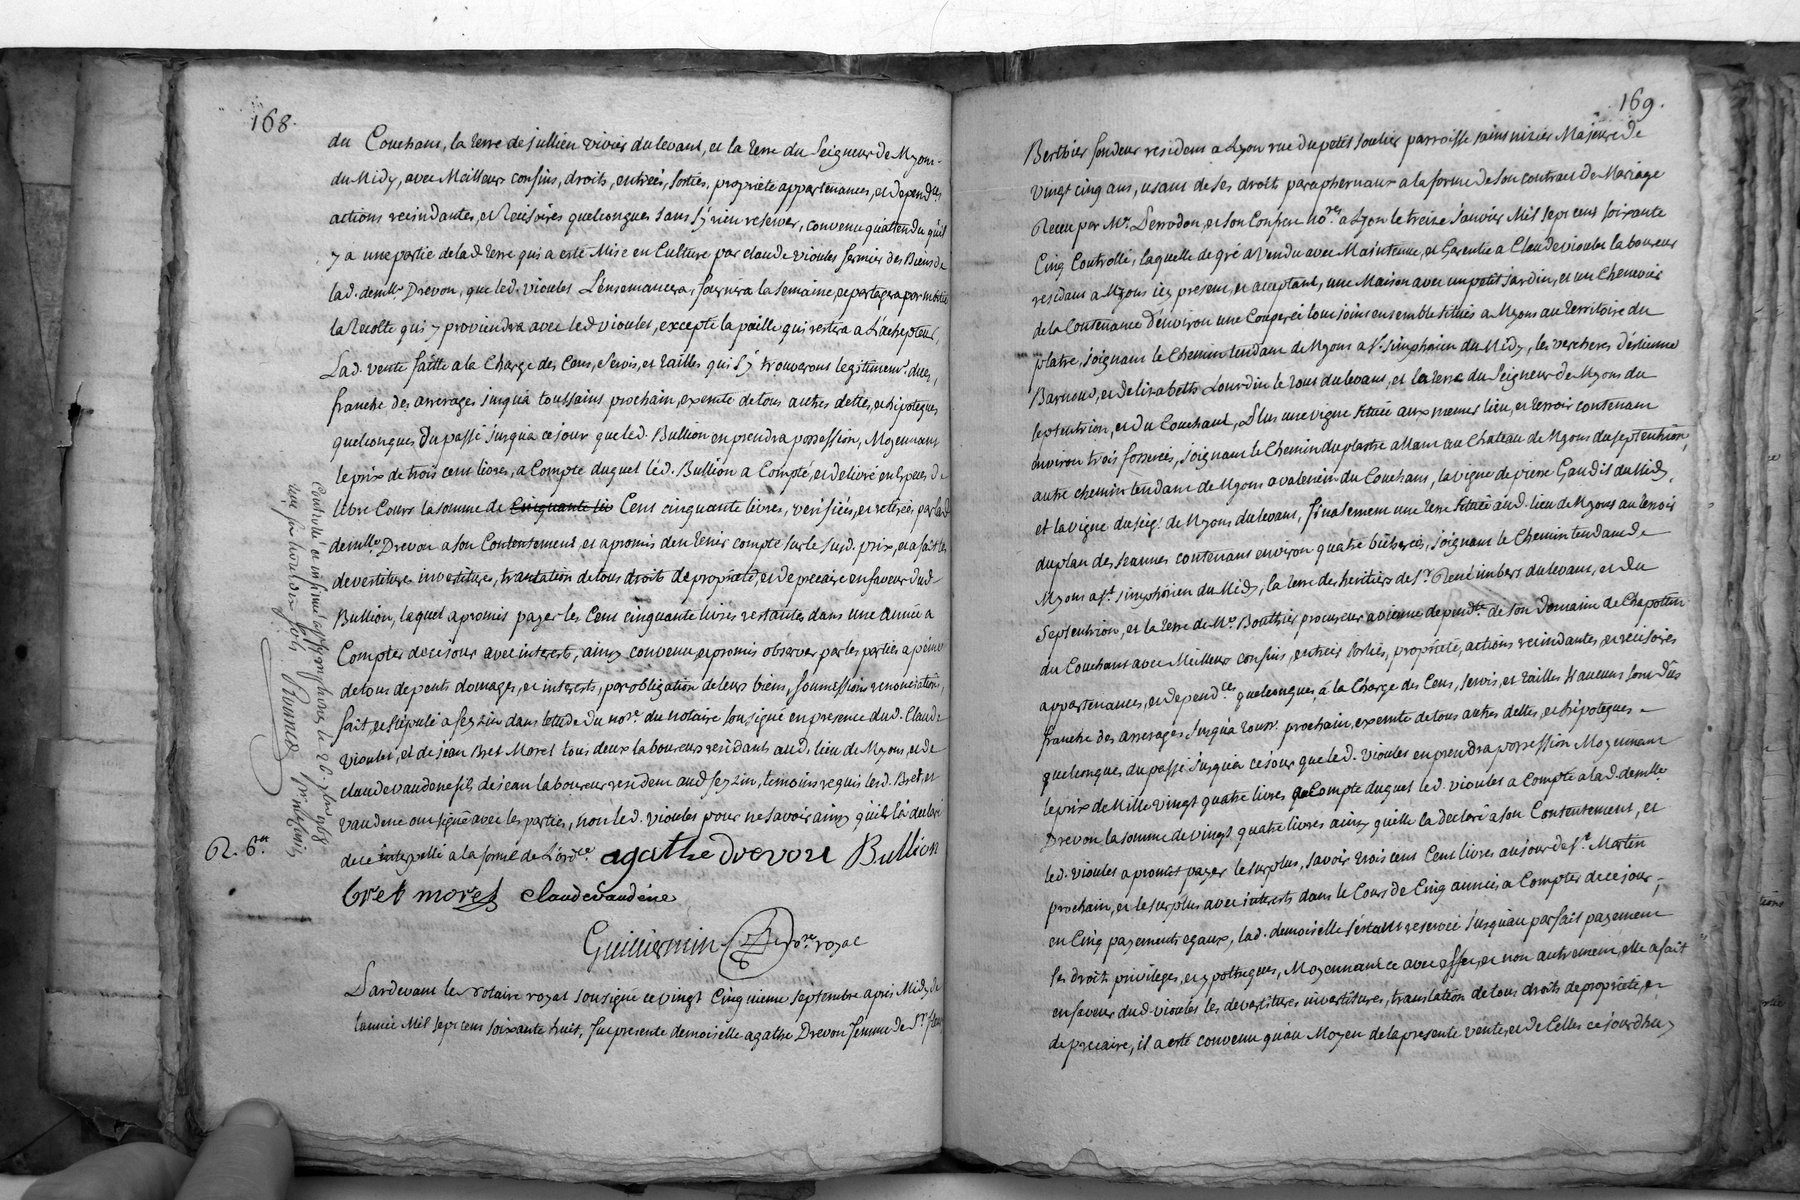 168.
du Couchant, la terre de jullien vivier du levant, et la terre du Seigneur de Myons
du Midy, avec Meilleurs confins, droits, entreés, sorties, proprieté appartenances, et dependces
actions rescindantes, et Rescisoires quelconques sans s'y rien reserver, convenu qu'attendu qu'il
y a une partie de lad. terre qui a esté Mise en Culture par claude vioulet fermier des Biens de
lad. demlle Drevon, que led. vioulet L'ensemancera, fournira la semaine, et partagera par moitié
la Recolte qui y proviendra avec led vioulet, excepté la paille qui restera a L'achepteur,
Lad. vente faitte a la Charge des Cens, Servis, et tailles qui s'y trouveront legitimemt. dues,
franche des arrerages jusqu'a toussaint prochain, exemte de tous autres dette, et hipoteques
quelconques du passé jusqu'a ce jour que led. Bullion en prendra possession, Moyennant
le prix de trois cent livres, a Compte duquel led. Bullion a Compté, et delivré en Especes de
libre Cours la somme de Cinquante liv Cent cinquante livres, vérifiées, et retirées par lad
demlle Drevon a son Contentement, et a promis d'en tenir compte sur le susd. prix, et a fait les
devestitures investiture, translation de tous droits de proprieté, et de precaire en faveur dud
Bullion, lequel a promis payer les Cent cinquante livres restantes dans une année a
Compter de ce jour avec interest, ainsy convenu, et promis observer par les parties a peine
de tous depents domages, et interests, par obligation de leurs biens, soumissions renonciations,
fait, et stipulé a feyzin dans letude du nore. du notaire soussigné en presence dud. Claude
Vioulet, et de jean Bret Moret tous deux laboureurs residants aud. lieu de Myons, et de
claude vaudene fils de jean laboureur resident aud feyzin, temoins requis led. Bret, et
vaudene ont signé avec les parties, non led. vioulet pour ne savoir ainsy qu'il l'a declaré
de ce interpellé a la forme de L'ordce.
agathe drevon Bullion
bret moret claude vaudene
Guillermin nore. royal
Controllé et insinué a st simphorien le 26. 7bre 1768
R. 6.
Pardevant le Notaire royal soussigné ce vingt Cinquieme Septembre apres Midy de
lannée Mil sept cent soixante huit, fut presente demoiselle agathe Drevon femme de Sr.
169.
Berthier fondeur resident a Lyon rue du petit soulier parroisse saint nizier Majeure de
vingt cinq ans, usant de ses droit paraphernaux a la forme de son contrat de Mariage
Receu par Me. Derrodon, et son Confrere nores a Lyon le treize janvier Mil sept cent soixante
Cinq Controllé, laquelle de gré a Vendu avec Maintenue, et Garentie a Claude vioulet laboureur
resident a Myons icy present, et aceptant, une Maison avec un petit jardin, et un Chenevier
de la Contenance d'environ une Couperée tous joints ensemble situés a Myons au territoire du
platre, joignant le Chemin tendant de Myons a st. simphorien du Midy, les vercheres d'etienne
Barnoud, et d'elizabeth Lourdin le tout du levant, et la terre du Seigneur de Myons du
septentrion, et du Couchant, Plus une vigne située aux memes lieu, et terroir contenant
environ trois fosserées, joignant le Chemin du plastre allant au Chateau de Myons du septentrion,
autre chemin tendant de Myons a valencin du Couchant, la vigne de pierre Gandil du Midy,
et la vigne du seigr. de Myons du levant, finalement une terre située aud. lieu de Myons au terroir
du plan des jeannes contenant environ quatre bicherées, joignant le Chemin tendant de
Myons a st. simphorien du Midy, la terre des heritiers de Sr. René imbert du levant, et du
Septentrion, et la terre de Me Bouthier procureur a vienne dependte de son domaine de Chapottin
du Couchant avec Meilleurs confins, entrées sorties, proprieté, actions rescindantes, et rescisoires
appartenances, et dependces quelconques, a la Charge des Cens, servis, et tailles si aucuns sont dus
franche des arrerages jusqu'a touss. prochain, exemte de tous autres dettes, et hipoteques
quelconque, du passé jusqu'a ce jour que led. vioulet en prendra possession Moyennant
le prix de Mille vingt quatre livres a Compte duquel led. vioulet a Compté a lad. demlle
Drevon la somme de vingt quatre livres ainsy qu'elle la declaré a son Contentement, et
led. vioulet a promis payer le surplus, savoir trois cent Cent livres au jour de st. Martin
prochain, et le surplus avec interests dans le Cours de Cinq années a Compter de ce jour,
en Cinq payements egaux, lad. demoiselle s'estant reservée jusqu'au parfait payement
ses droits privileges, et ypotheques, Moyennant ce avec effet, et non autrement, elle a fait
en faveur dud vioulet les devestitures investitures, translation de tous droits de proprieté, et
de precaire, il a esté convenu qu'au Moyen de la presente vente, et de Celles ce jourdhuy